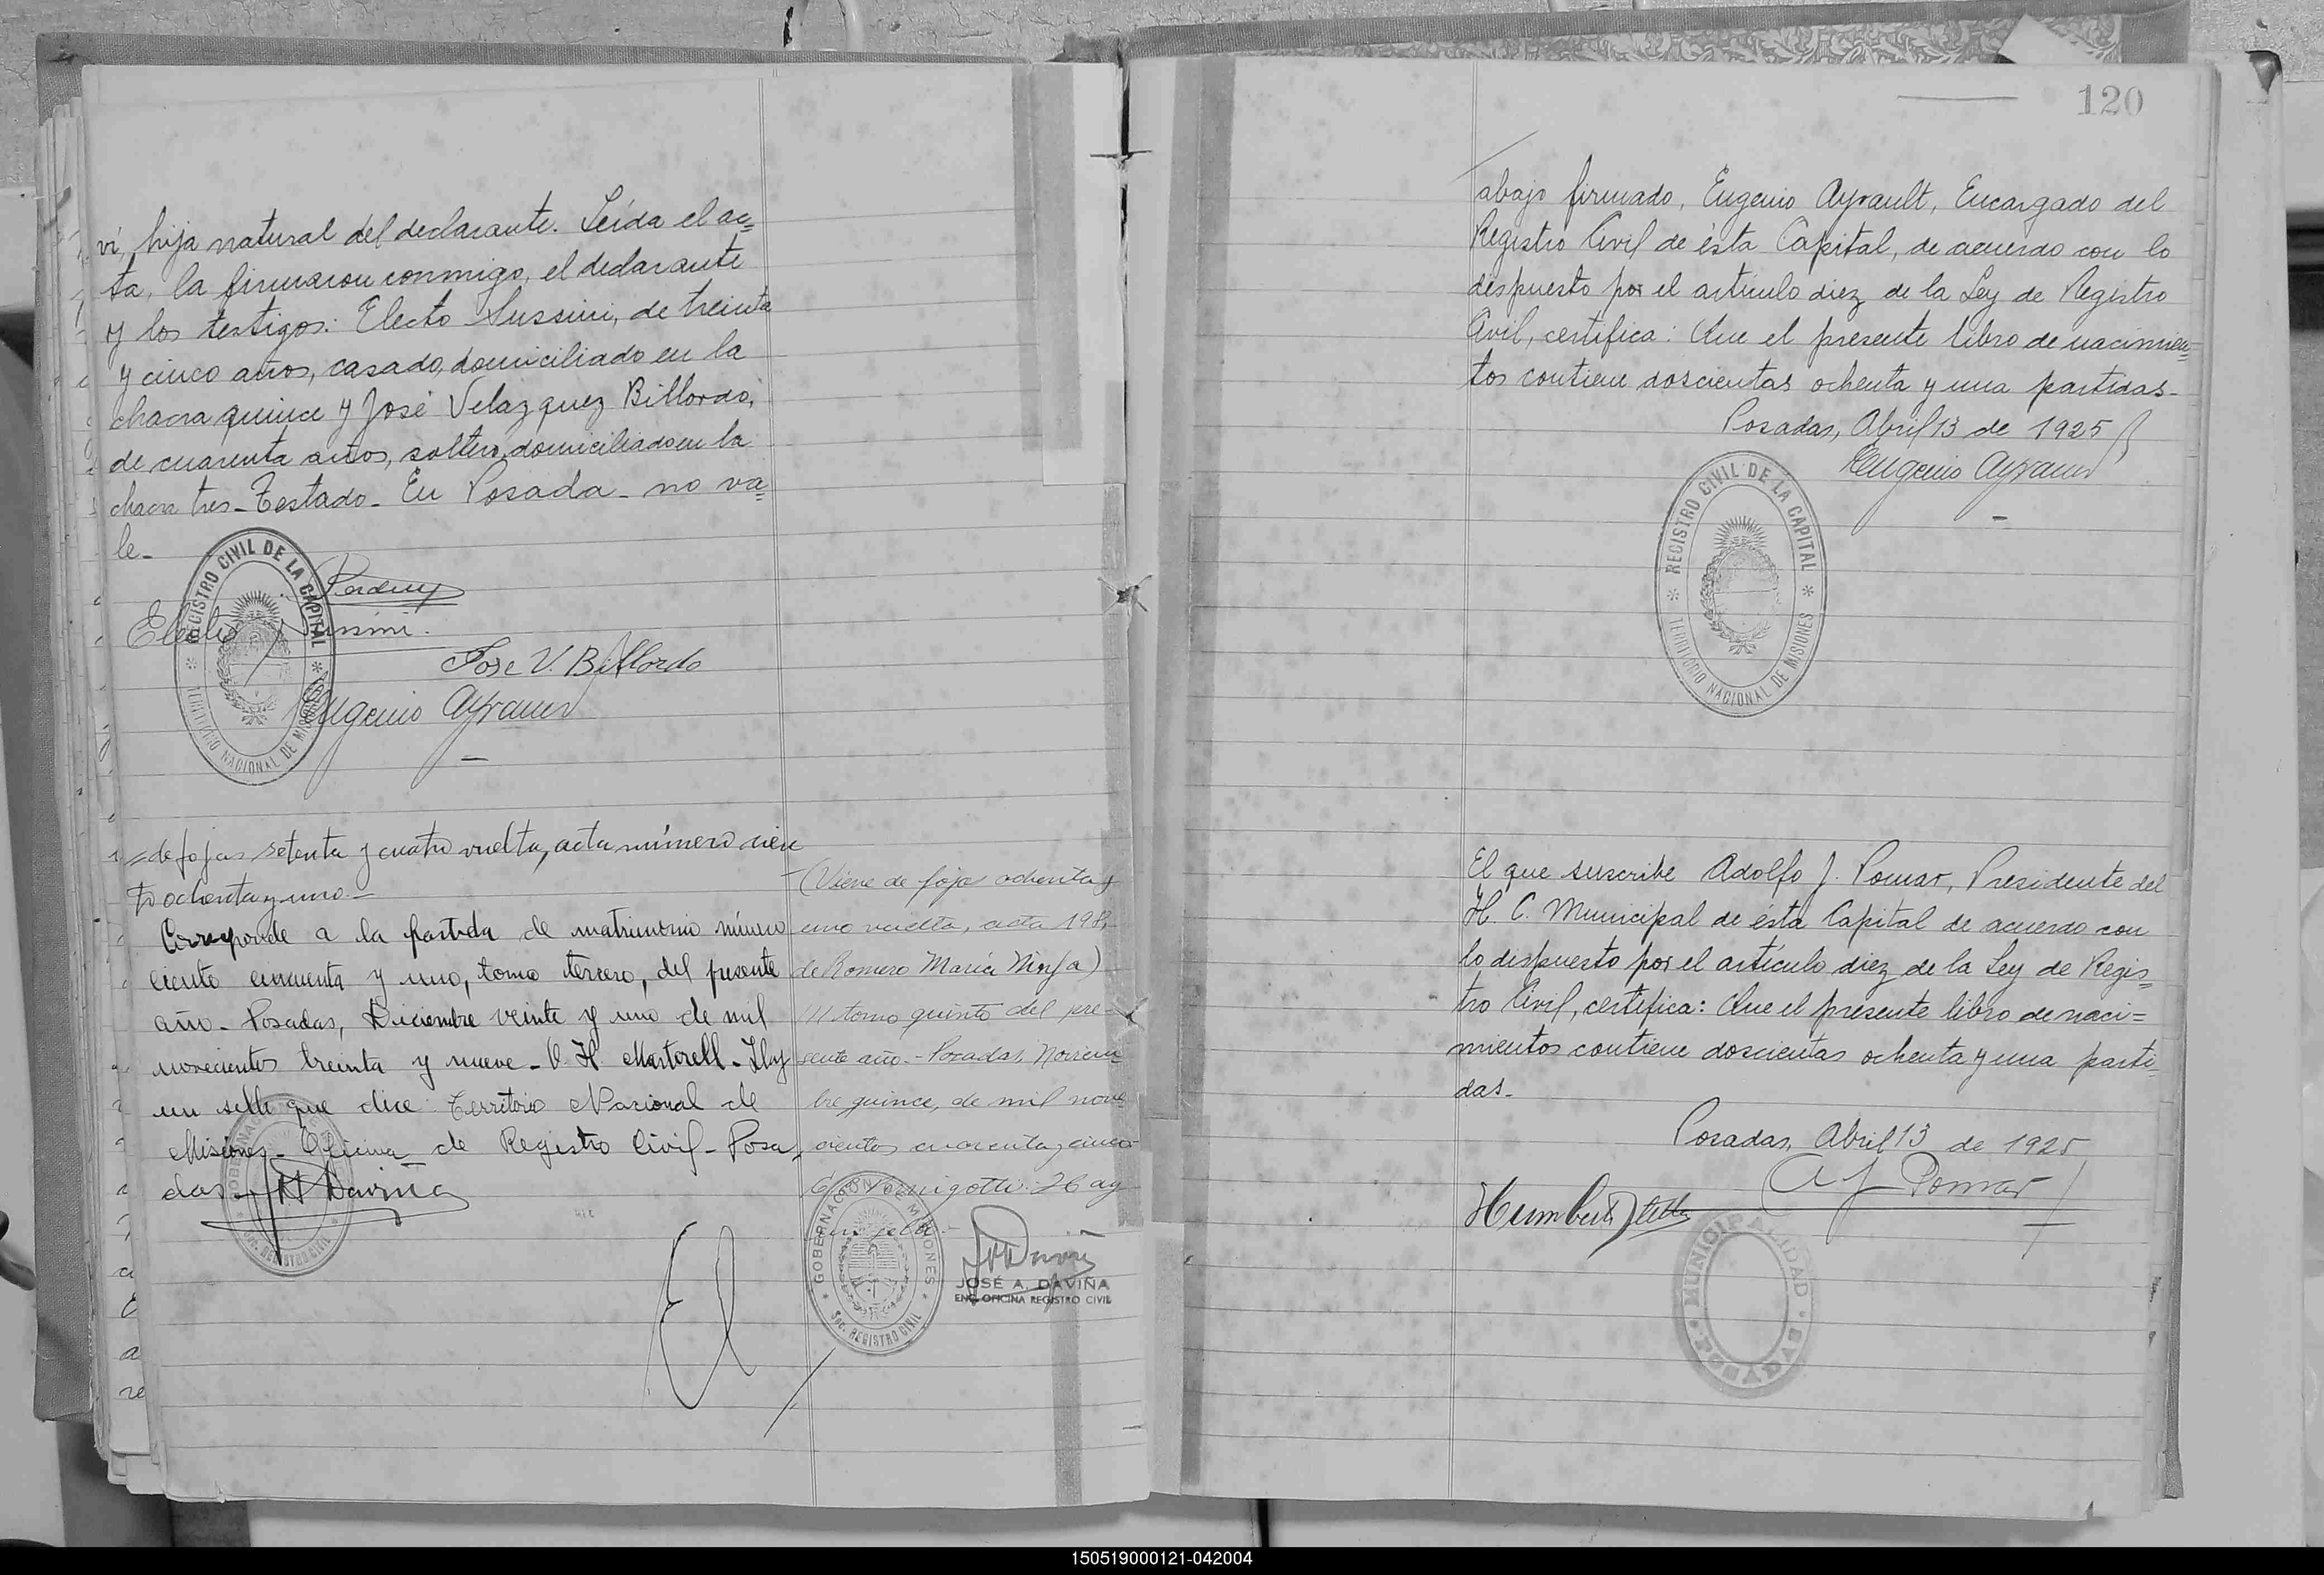 vi, hija natural del declarante. Leída el ac=
ta, la firmaron conmigo, el declarante
y los testigos: Electo Sussini, de treinta
y cinco años, casado, domiciliado en la
chacra quince y José Velazquez Billordo,
de cuarenta años, soltero, domiciliado en la
chacra tres_Testado_ En Posada_ no va=
le_
Electo Sussini.
Jose V. Billordo
Eugenio Ayrault
REGISTRO CIVIL DE LA CAPITAL
TERRITORIO NACIONAL DE MISIONES
=de fojas setenta y cuatro vuelta, acta número cien
to ochenta y uno.=
Corresponde a la partida de matrimonio número
ciento cincuenta y uno, tomo tercero, del presente
año_ Posadas, Diciembre veinte y uno de mil
novecientos treinta y nueve_ O. H. Martorell_ Hay
un sello que dice: Territorio Nacional de
Misiones_ Oficina de Registro Civil_ Posa
das_ Daviña
(Viene de fojas ochenta y
uno vuelta, acta 198,
de Romero María Ninfa)
tomo quinto del pre-
sente año.- Posadas, Noviem
bre quince, de mil nove
cientos cuarenta y cinco
Hay
un sello.-
GOBERNACION MISIONES
SEC. REGISTRO CIVIL
JOSÉ A. DAVIÑA
ENC. OFICINA REGISTRO CIVIL
120
abajo firmado, Eugenio Ayrault, Encargado del
Registro Civil de ésta Capital, de acuerdo con lo
dispuesto por el artículo diez de la Ley de Registro
Civil, certifica: Que el presente libro de nacimien=
tos contiene doscientas ochenta y una partidas_
Posadas, Abril 13 de 1925
Eugenio Ayrault
REGISTRO CIVIL DE LA CAPITAL
TERRITORIO NACIONAL DE MISIONES
El que suscribe Adolfo J. Pomar, Presidente del
H. C. Municipal de ésta Capital de acuerdo con
lo dispuesto por el artículo diez de la Ley de Regis=
tro Civil, certifica: Que el presente libro de naci=
mientos contiene doscientas ochenta y una parti=
das_
Posadas, Abril 13 de 1925
A J Pomar
Humberto
MUNICIPALIDAD
150519000121-042004